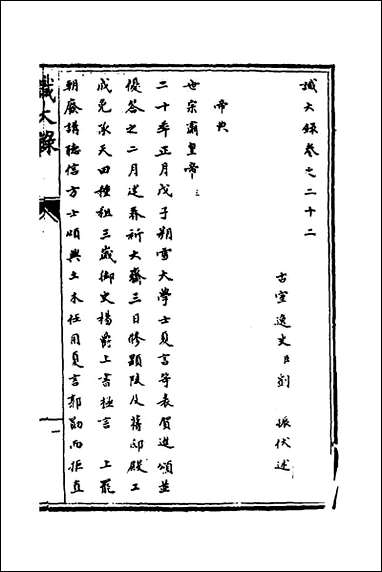 識大録卷之二十二
古宣逸史臣劉　振伏述
帝典
世宗肅皇帝三
二十年正月戊子朔雪大學士夏言等表賀進頌並
優答之二月建春祈大齋三日修顯陵及舊邸殿工
成免承天田種租三歲御史楊爵上書極言　上罷
朝廢講聽信方士頌興土木任用夏言郭勛而拒直
識大錄
一